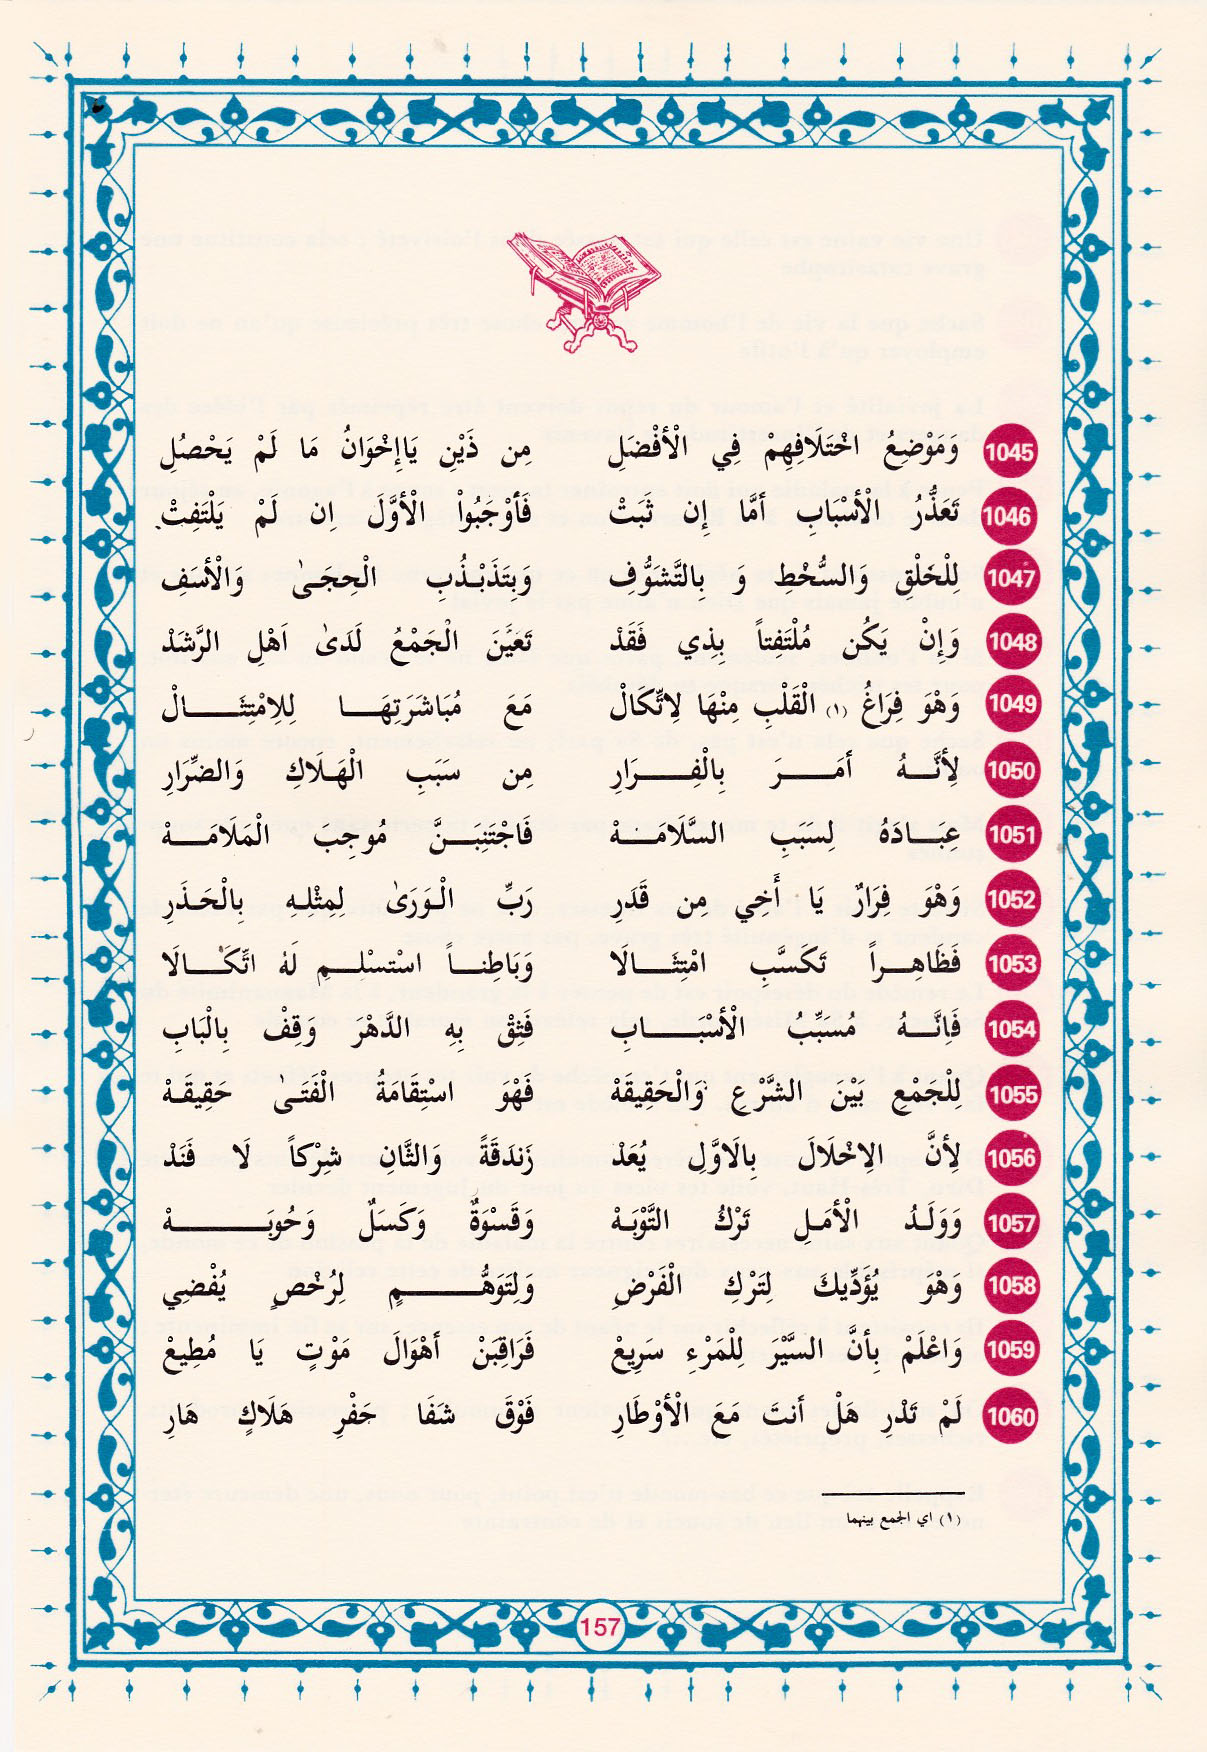 1045 وَمَوْضِعُ اخْتَلَافِهِمْ فِي الْأَفْضَلِ مِن ذَيْنِ يَاإِخْوَانُ مَا لَمْ يَحْصُلِ
1046 تَعَذُّرُ الْأَسْبَابِ أَمَّا إِن ثَبَتْ فَأَوْجَبُواْ الْأَوَّلَ اِن لَمْ يَلْتَفِتْ
1047 لِلْخَلْقِ وَالسُّخْطِ وَ بِالتَّشَوُّفِ وَبِتَذَبْذُبِ الْحِجَىٰ وَالْأَسَفِ
1048 وَإِنْ يَكُن مُلْتَفِتاً بِذِي فَقَدْ تَعَيَّنَ الْجَمْعُ لَدَىٰ اَهْلِ الرَّشَدْ
1049 وَهْوَ فِرَاغُ (١) الْقَلْبِ مِنْهَا لِاتِّكَالْ مَعَ مُبَاشَرَتِهَا لِلِامْتِثَالْ
1050 لِأَنَّهُ أَمَرَ بِالْفِرَارِ مِن سَبَبِ الْهَلَاكِ وَالضِّرَارِ
1051 عِبَادَهُ لِسَبَبِ السَّلَامَهْ فَاجْتَنِبَنَّ مُوجِبَ الْمَلَامَهْ
1052 وَهْوَ فِرَارٌ يَا أَخِي مِن قَدَرِ رَبِّ الْوَرَىٰ لِمِثْلِهِ بِالْحَذَرِ
1053 فَظَاهِراً تَكَسَّبِ امْتِثَالَا وَبَاطِناً اسْتَسْلِمِ لَهُ اتِّكَالَا
1054 فَاِنَّهُ مُسَبِّبُ الْأَسْبَابِ فَثِقْ بِهِ الدَّهْرَ وَقِفْ بِالْبَابِ
1055 لِلْجَمْعِ بَيْنَ الشَّرْعِ وَالْحَقِيقَهْ فَهْوَ اسْتِقَامَةُ الْفَتَىٰ حَقِيقَهْ
1056 لِأَنَّ الِاخْلَالَ بِالَاوَّلِ يُعَدْ زَنْدَقَةً وَالثَّانِ شِرْكاً لَا فَنَدْ
1057 وَوَلَدُ الْأَمَلِ تَرْكُ التَّوْبَهْ وَقَسْوَةٌ وَكَسَلٌ وَحُوبَهْ
1058 وَهْوَ يُؤَدِّيكَ لِتَرْكِ الْفَرْضِ وَلِتَوَهُّمٍ لِرُخْصٍ يُفْضِي
1059 وَاعْلَمْ بِأَنَّ السَّيْرَ لِلْمَرْءِ سَرِيعْ فَرَاقِبَنْ أَهْوَالَ مَوْتٍ يَا مُطِيعْ
1060 لَمْ تَدْرِ هَلْ أَنتَ مَعَ الْأَوْطَارِ فَوْقَ شَفَا جَفْرِ هَلَاكٍ هَارِ
(١) اي الجمع بينهما
157